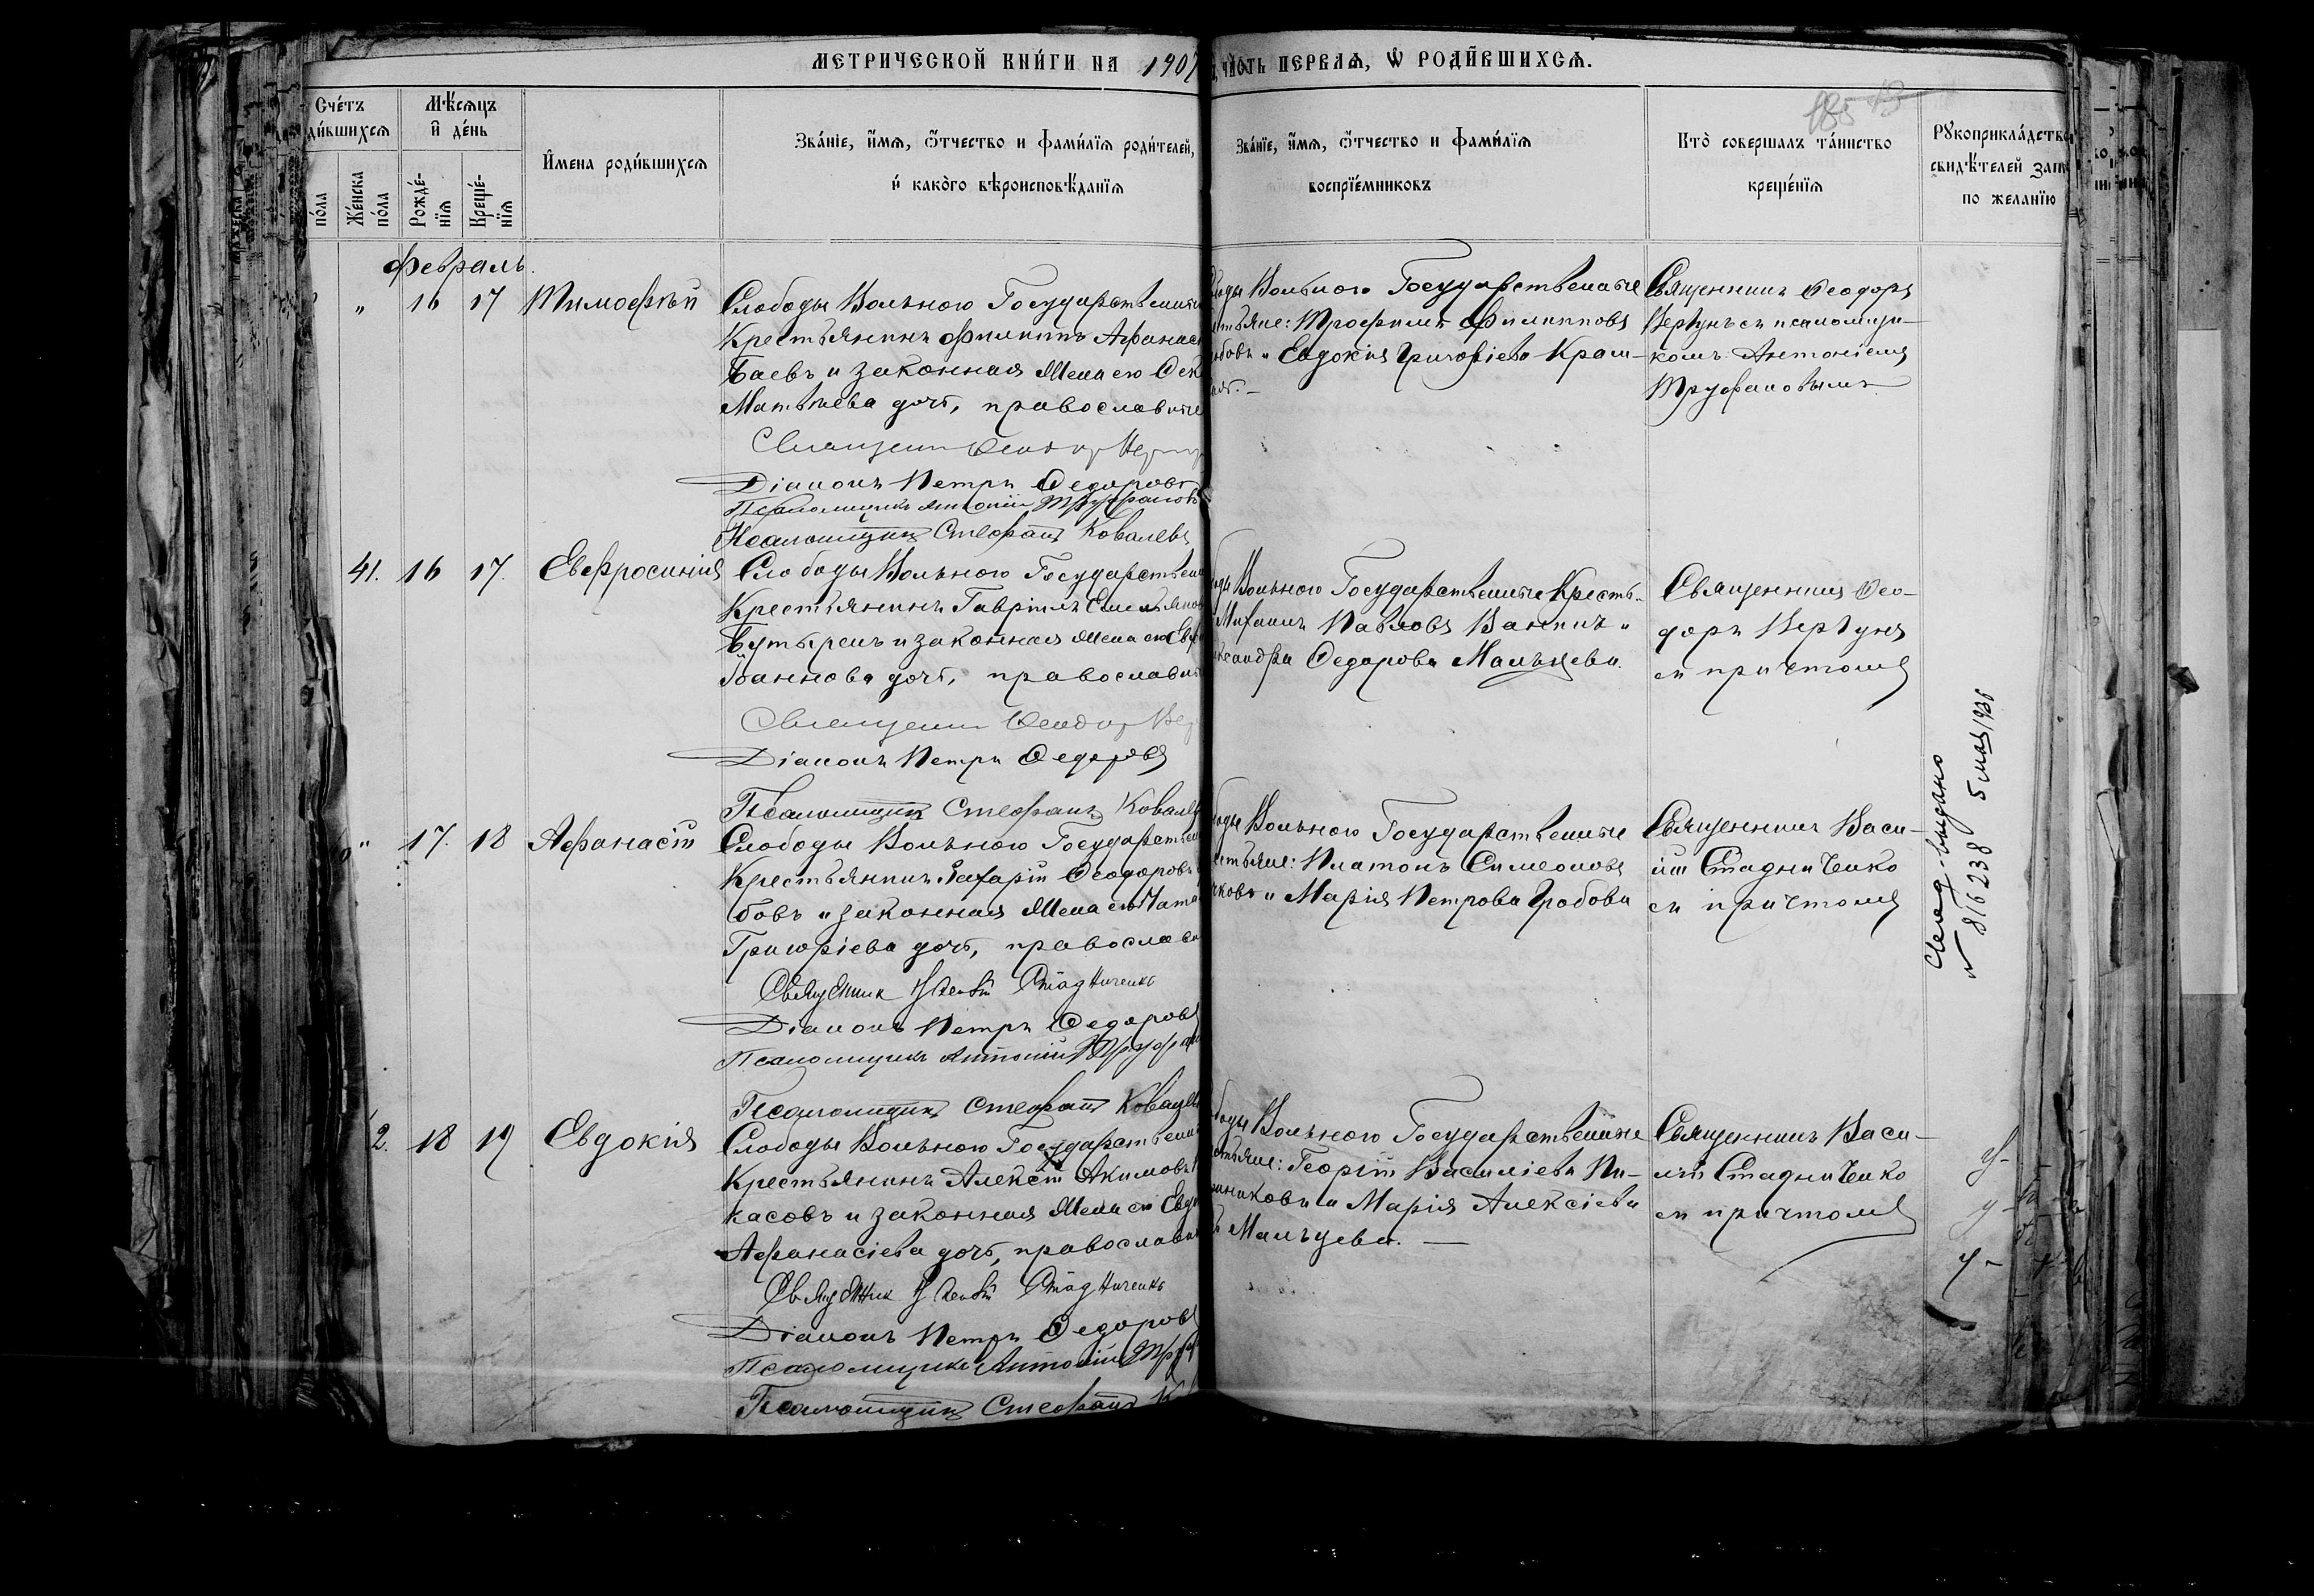 МЕТРИЧЕСКОЙ КНИ́ГИ НА 1902
ЧА́СТЬ ПЕРВАѦ, Ѡ РОДИ́ВШИХСѦ.
185
Сче́тъ
ди́вшихсѧ
Мѣ́сѧцъ
и҆ де́нь
И҆мена роди́вшихсѧ
Зва́нїе, и҆́мѧ, ѻ҆́тчество и фами́лїѧ роди́телей,
и҆ како́го вѣроисповѣ́данїѧ
Зва́нїе, и҆́мѧ, ѻ҆́тчество и фами́лїѧ
воспрїе́мниковъ
Кто̀ совершалъ та́инство
креще́нїѧ
Рꙋкоприкла́дство
свидѣ́телей
по желанїю
по́ла
Же́нска
по́ла
Рожде́-
нїѧ
Креще́-
нїѧ
Февраль.
" 16 17 Тимофѣй
Слободы Вольного Государственный
Крестьянинъ Филиппъ Афанас
Баевъ и законная жена его Оек
Матвѣева дочь, православные
Священн Ѳеодор
Діаконъ Петръ Ѳедоровъ
Псаломщикъ Антоній Труфановъ
Псаломщикъ Стефанъ Ковалевъ
Вольного Государственные
Трофимъ Филипповъ
и Евдокія Григорьева Крам-
Священникъ Ѳеодоръ
Вертунъ съ псаломщи-
комъ Антоніемъ
Труфановымъ
41. 16 17. Евфросинія
Слободы Вольного Государствен
Крестьянинъ Гавріилъ Емельянов
Бутыринъ и законная жена его Евф
Іоаннова дочь, православн
Священн Ѳеодор Вер
Діаконъ Петръ Ѳедоровъ
Псаломщикъ Стефанъ Ковале
Вольного Государственные Кресть-
Михаилъ Павловъ Ванинъ и
Ѳедорова Мальцева.
Священникъ Ѳео-
доръ Вертунъ
съ причтомъ
" 17. 18 Афанасій
Слободы Вольного Государствен
Крестьянинъ Захарій Ѳеодоровъ
бовъ и законная жена его Ната
Григоріева дочь, православн
Священник Василій Стадниченко
Діаконъ Петръ Ѳедоровъ
Псаломщикъ Антоній Труфан
Псаломщикъ Стефанъ Ковалев
Вольного Государственные
Платонъ Симеоновъ
и Марія Петрова Грабова
Священникъ Васи-
лій Стадниченко
съ причтомъ
выдано
№ 816238 5 мая
2. 18 19 Евдокія
Слободы Вольного Государствен
Крестьянинъ Алексѣй Акимовъ
касовъ и законная жена его Евд
Афанасіева дочь, православн
Священник Василій Стадниченко
Діаконъ Петръ Ѳедоровъ
Псаломщикъ Антоній Труф
Псаломщикъ Стефанъ К
Вольного Государственные
Георгій Василіевъ Пи-
и Марія Алексіева
Мальцева. —
Священникъ Васи-
лій Стадниченко
съ причтомъ